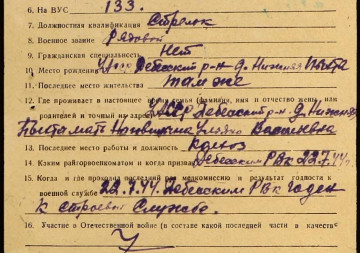 6. На ВУС 133.
7. Должностная квалификация Стрелок
8. Военное звание Рядовой
9. Гражданская специальность Нет
10. Место рождения УАССР Дебесский р-н д. Нижняя Пыхта
11. Последнее место жительства Там же
12. Где проживает в настоящее время семья (фамилия, имя и отчество жены или
родителей и точный их адрес) УАССР Дебесский р-н д. Нижняя
Пыхта мать Васильевна
13. Последнее место работы и должность Колхоз
14. Каким райгорвоенкоматом и когда призван Дебесским РВК 22.7.44г
15. Когда и где проходил последнюю медкомиссию и результат годности к
военной службе 22.7.44г. Дебесским РВК годен
к строевой службе.
16. Участие в Отечественной войне (в составе какой последней части и в качестве